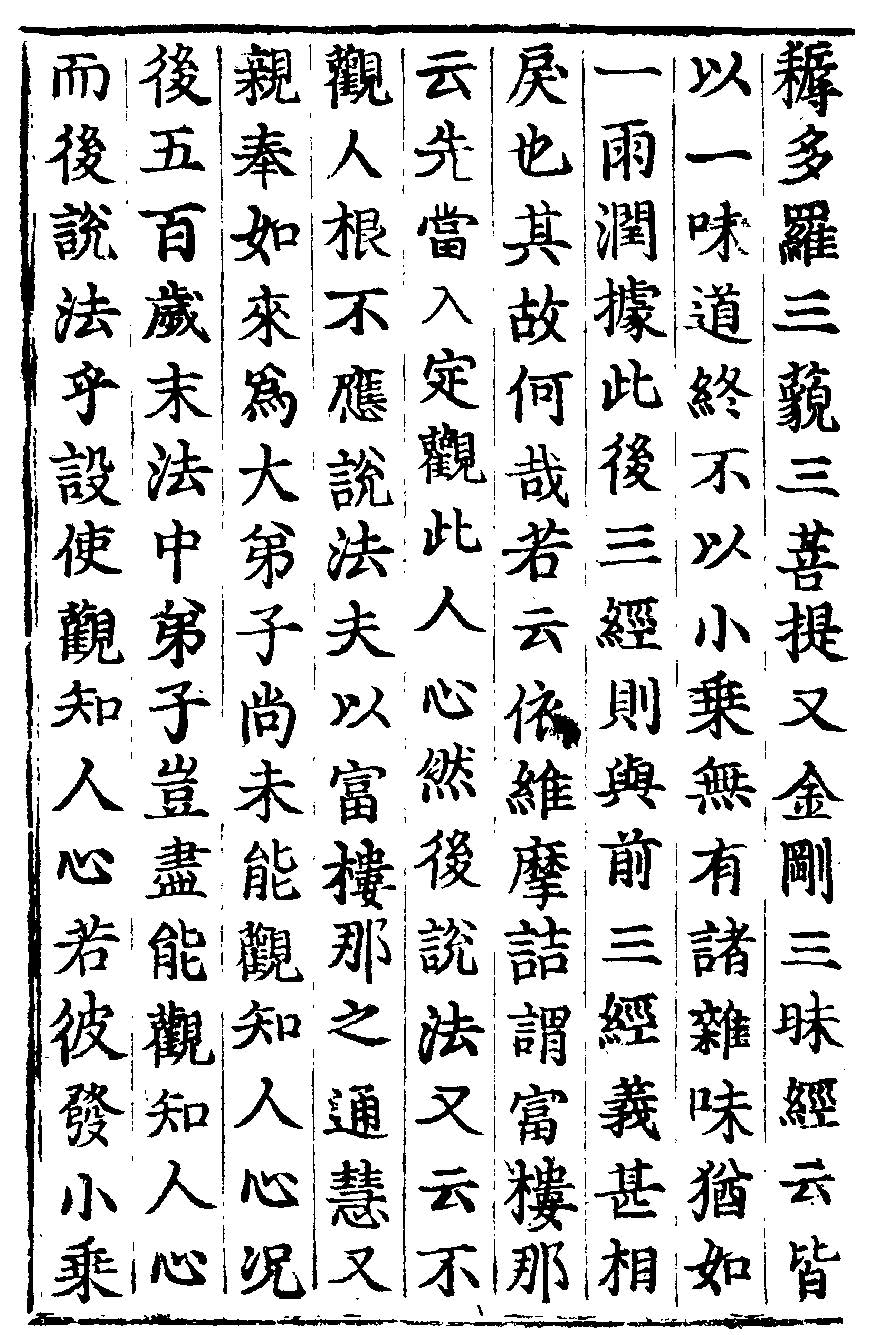 耨多羅三藐三菩提又金剛三昧經云皆
以一味道終不以小乗無有諸雜味猶如
一雨潤據此後三經則與前三經義甚相
戾也其故何哉若云依維摩詰謂富樓那
云先當入定觀此人心然後說法又云不
觀人根不應說法夫以富樓那之通慧又
親奉如來爲大弟子尚未能觀知人心况
後五百歲末法中弟子豈盡能觀知人心
而後說法乎設使觀知人心若彼發小乗